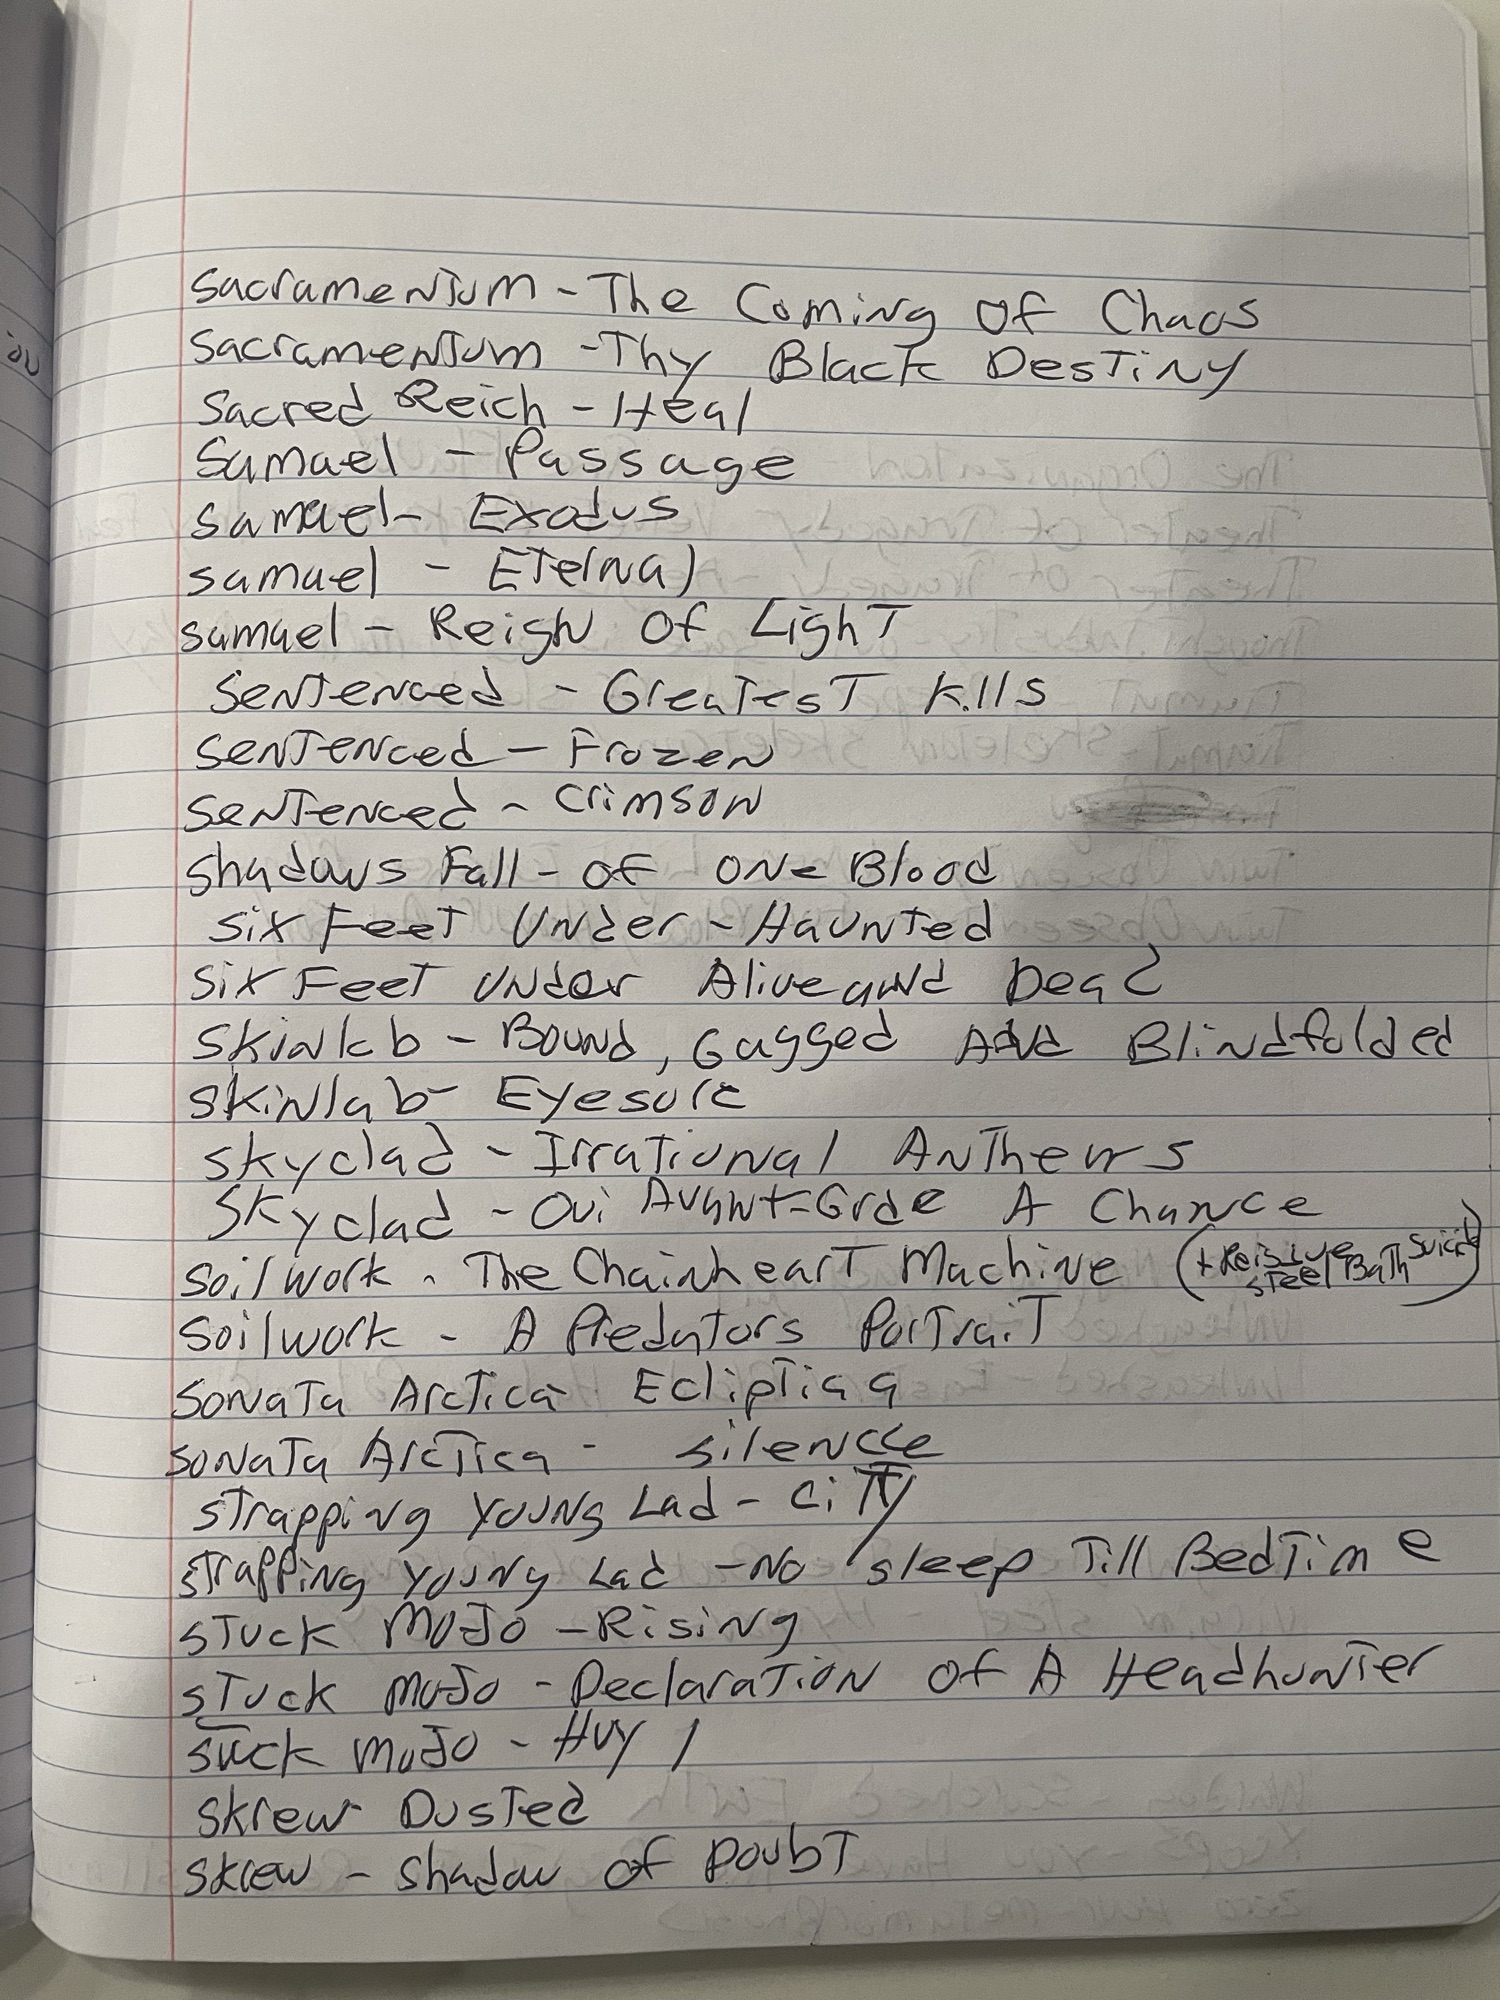 Sacramentum - The Coming Of Chaos
Sacramentum - Thy Black Destiny
Sacred Reich - Heal
Samael - Passage
Samael - Exodus
Samael - Eternal
Samael - Reign Of Light
Sentenced - Greatest Kills
Sentenced - Frozen
Sentenced - Crimson
Shadows Fall - Of One Blood
Six Feet Under - Haunted
Six Feet Under Alive and Dead
Skinlab - Bound, Gagged And Blindfolded
Skinlab - Eyesore
Skyclad - Irrational Anthems
Skyclad - Oui Avant-Grde A Chance
Soilwork - The Chainheart Machine (+ Steel Bath Suicide)
Soilwork - A Predators Portrait
Sonata Arctica Ecliptica
Sonata Arctica - Silence
Strapping Young Lad - City
Strapping Young Lad - No Sleep Till Bedtime
Stuck Mojo - Rising
Stuck Mojo - Declaration of A Headhunter
Stuck Mojo - HVY 1
Skrew Dusted
Skrew - Shadow of Doubt